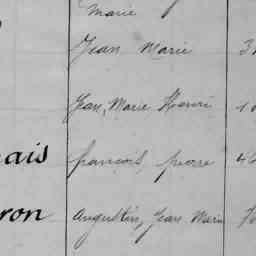 Marie
Jean Marie 3
Jean, Marie Henri 10
ais françois, pierre 46
ron Augustin, Jean Marie